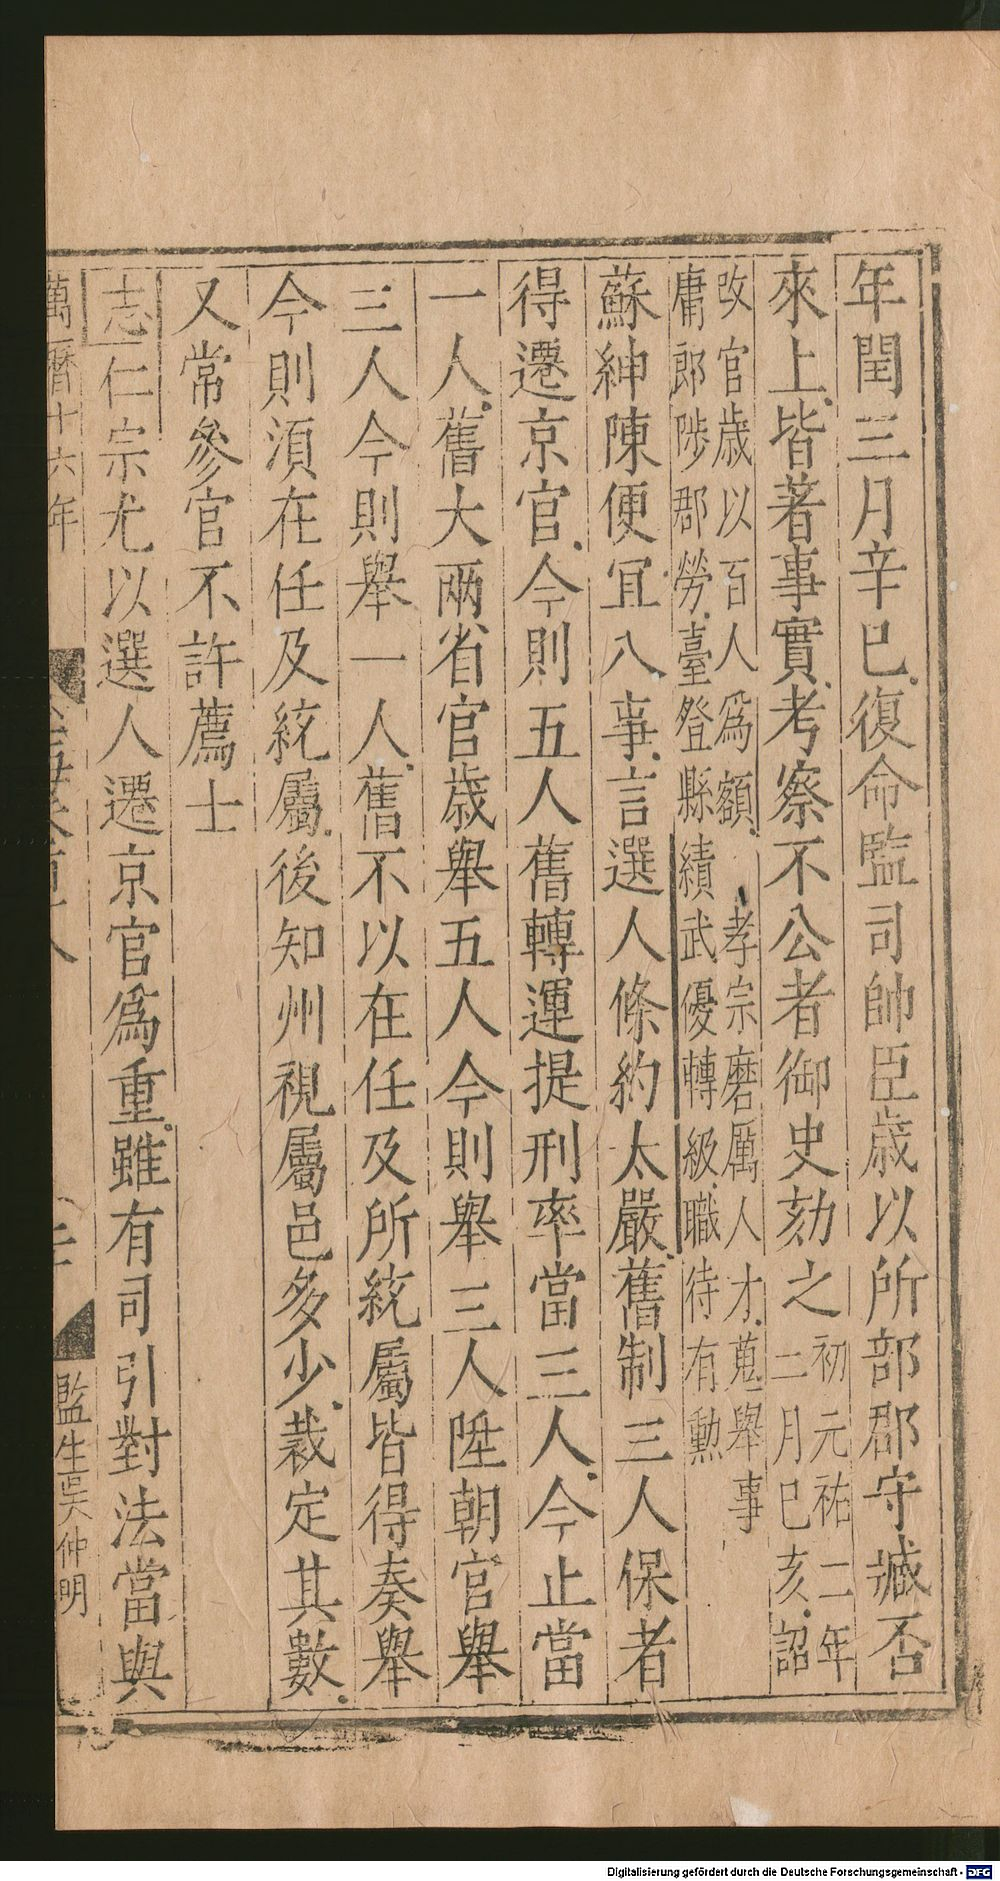 年閏三月辛巳復命監司帥臣歲以所部郡守臧否
來上皆著事實考察不公者御史劾之初元祐二年
二月巳亥詔
改官歲以百人爲額孝宗磨厲人才蒐舉事
庸郎陟郡勞臺登縣績武優轉級職待有勳
蘇紳陳便冝八事言選人條約太嚴舊制三人保者
得遷京官今則五人舊轉運提刑率當三人今止當
一人舊大兩省官歲舉五人今則舉三人陞朝官舉
三人今則舉一人舊不以在任及所統屬皆得奏舉
今則湏在任及統屬後知州視屬邑多少裁定其數
又常參官不許薦士
志仁宗尤以選人遷京官爲重雖有司引對法當與
萬曆十六年
監生吳仲明
Digitalisierung gefördert durch die Deutsche Forschungsgemeinschaft - DFG